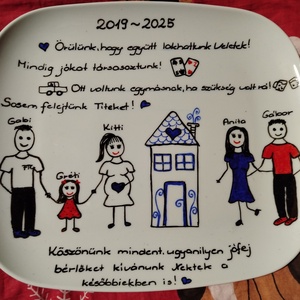 2019~2025
Örülünk, hogy együtt lakhattunk Veletek!
Mindig jókat társasoztunk!
Ott voltunk egymásnak, ha szükség volt rá!
Sosem felejtünk Titeket!
Gabi
Gréti
Kitti
Anita
Gábor
Köszönünk mindent, ugyanilyen jófej
bérlőket kívánunk Nektek a
későbbiekben is!